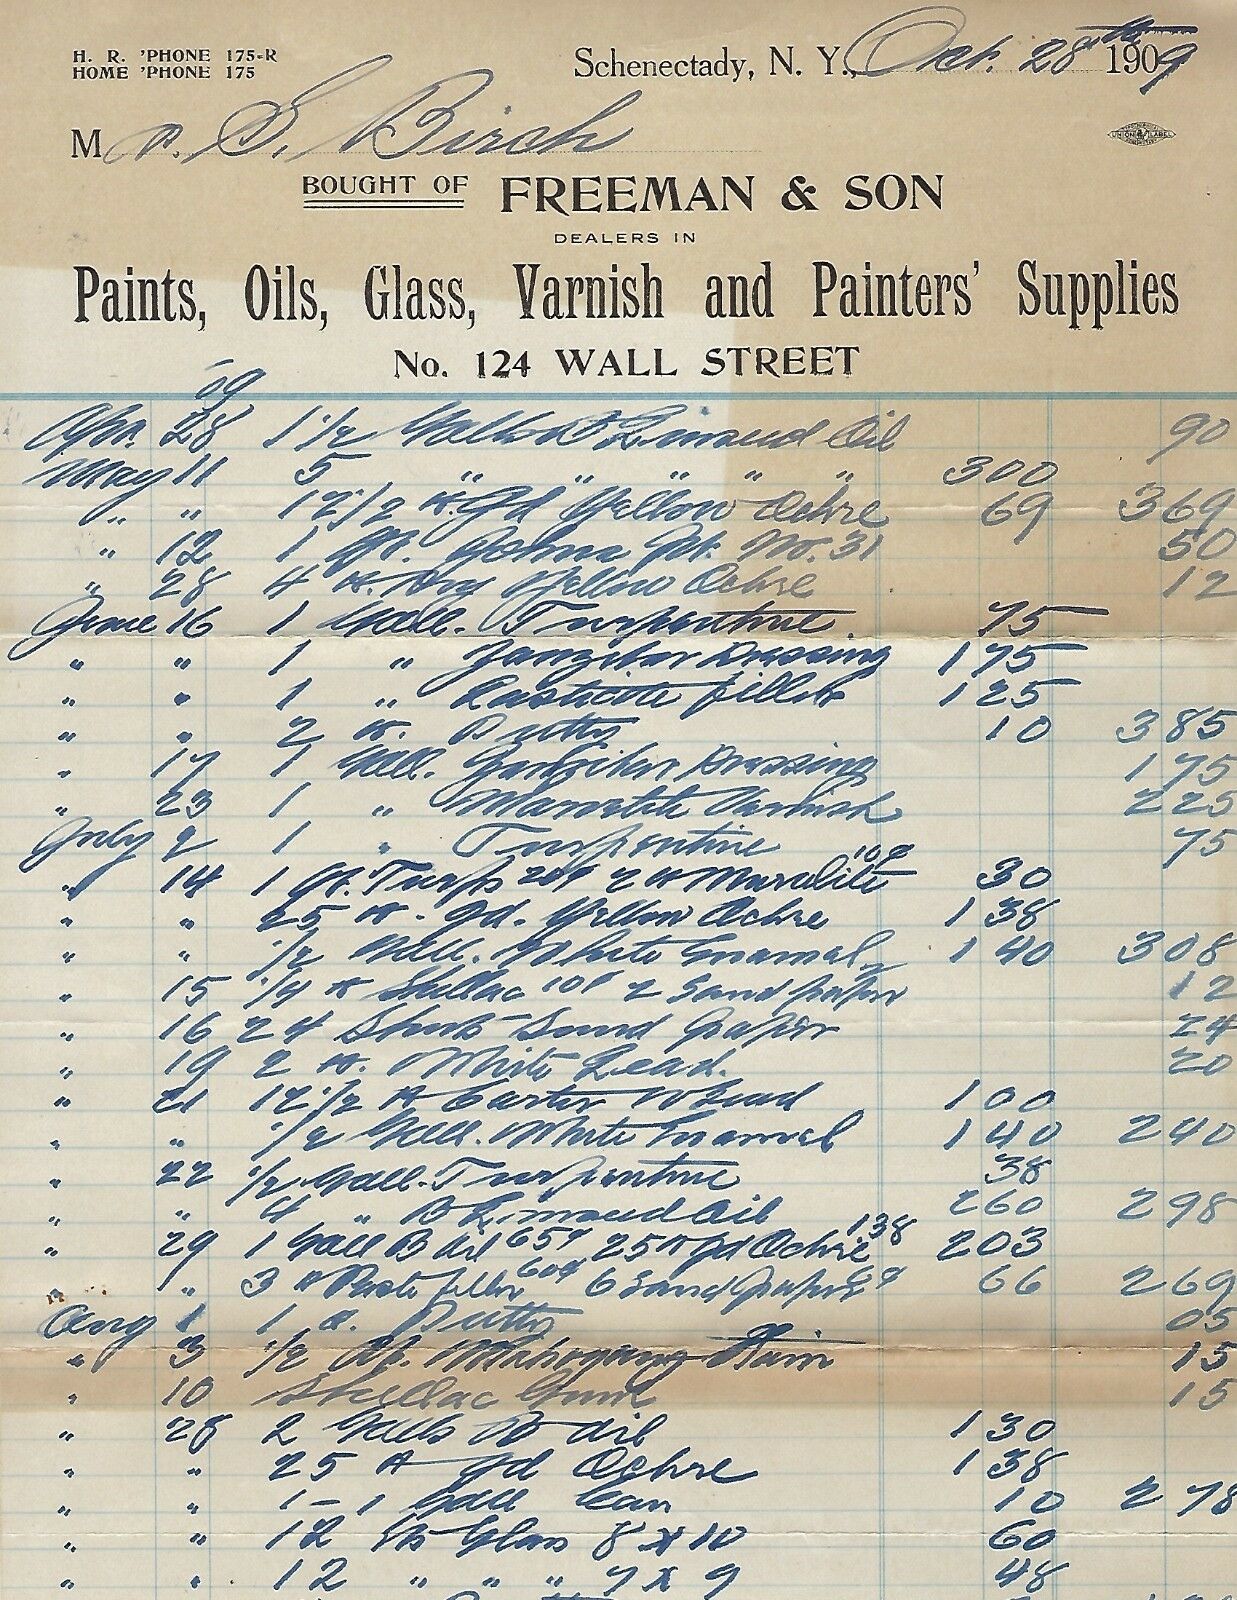 H. R. 'PHONE 175-R
HOME 'PHONE 175
Schenectady, N. Y., Oct. 28th 1909
Mr. S. Birch
UNION LABEL
BOUGHT OF FREEMAN & SON
DEALERS IN
Paints, Oils, Glass, Varnish and Painters' Supplies
No. 124 WALL STREET
09
Apr. 28 1 1/2 Galls B Linseed Oil 90
May 11 5 " " " " " 300
" " 12 1/2 # Gd Yellow Ochre 69 369
" 12 1 Johns No. 31 50
" 28 4 # Dry Yellow Ochre 12
June 16 1 Gall. Turpentine 75
" " 1 " Zanzibar Dressing 175
" " 1 " filler 125
" " 2 #. Putty 10 385
" 17 1 Gall. Zanzibar Dressing 175
" 23 1 " Varnish 225
July 2 1 " Turpentine 75
" 14 1 qt. Turps 20¢ 2 # Muralite 10¢ 30
" " 25 #. Gd. Yellow Ochre 138
" " 1/2 Gall. White Enamel 140 308
" 15 1/4 # Shellac 10¢ 2 Sand paper 12
" 16 24 Sheets Sand paper 24
" 19 2 #. White Lead. 20
" 21 12 1/2 # Carter W Lead 100
" " 1/2 Gall. White Enamel 140 240
" 22 1/2 Gall. Turpentine 38
" " 4 " B Linseed Oil 260 298
" 29 1 Gall B Oil 65¢ 25 # Gd Ochre 138 203
" " 3 # Paste filler 60¢ 6 Sand paper 6¢ 66 269
Aug 1 1 #. Putty 05
" 3 1/2 Pt. Mahogany Stain 15
" 10 Shellac Gum 15
" 28 2 Galls B Oil 130
" " 25 # Gd Ochre 138
" " 1-1 Gall Can 10 278
" " 12 Lts Glass 8 x 10 60
" " 12 " " " 7 x 9 48